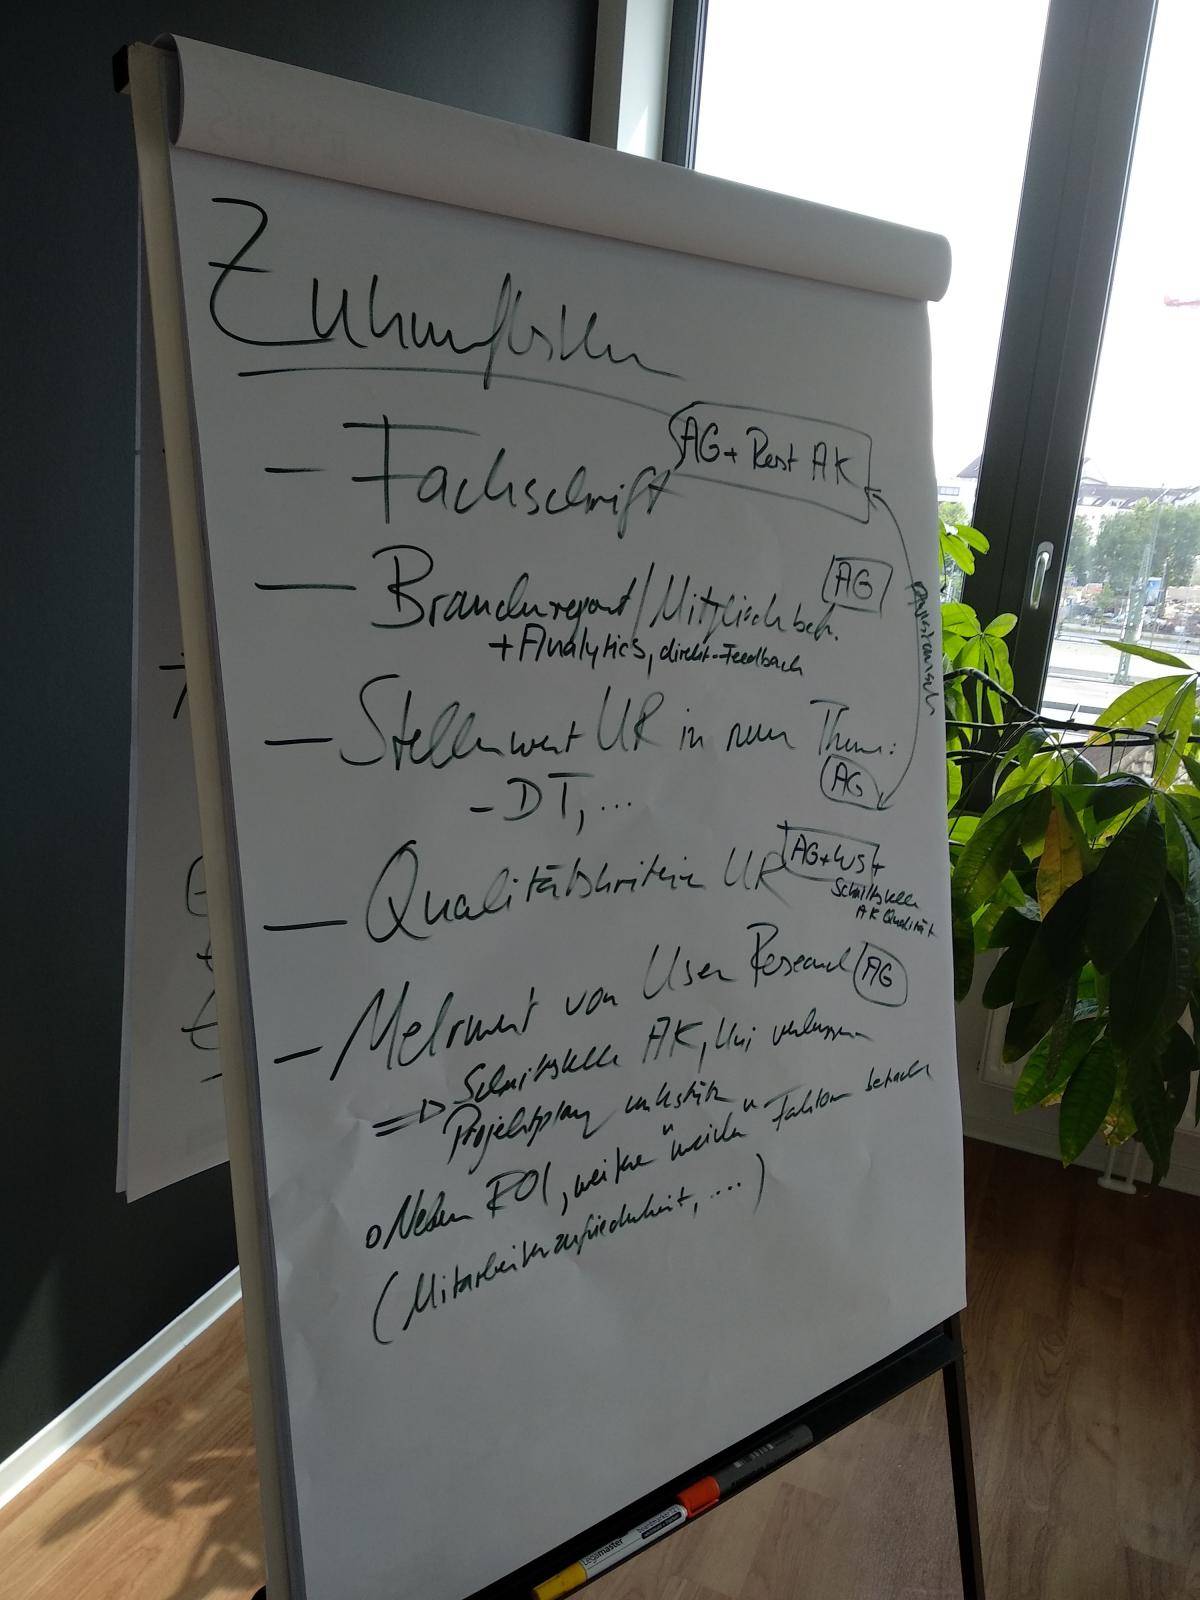 Zukunftsthemen
- Fachschrift
AG + Rest AK
- Branchenreport/Mitgliederbefr.
AG
+ Analytics, direkt-Feedback
- Stellenwert UR in neuen Themen:
AG
- DT, ...
- Qualitätskriterien UR
AG + WS +
Schnittstelle
AK Qualität
- Mehrwert von User Research
AG
=> Schnittstelle AK, Uni
Projektplan
o Neben ROI, weitere "weiche" Faktoren betrachten
(Mitarbeiterzufriedenheit, ....)
Legamaster